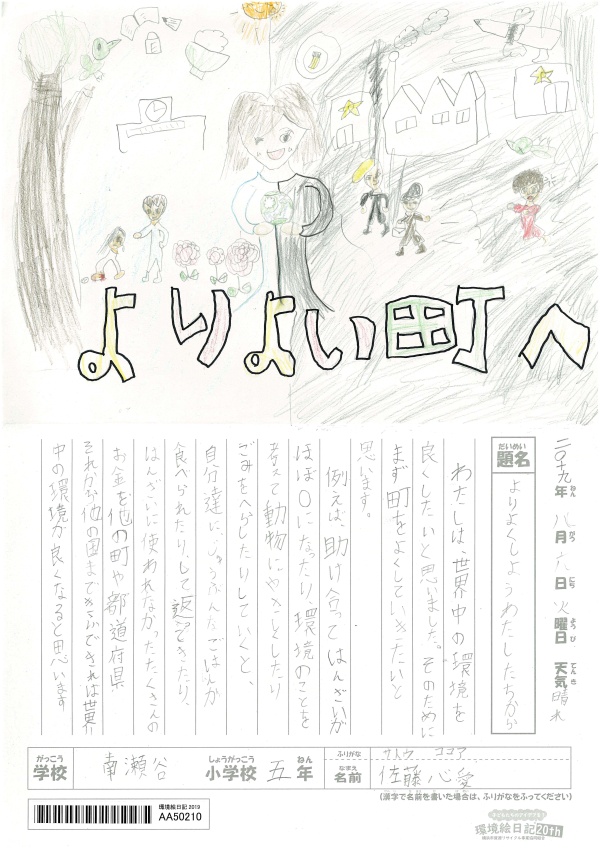 よりよい町へ
二〇十九年ねん八月がつ六日にち火曜日ようび天気てんき晴れ
だいめい
題名
よりよくしようわたしたちから
わたしは、世界中の環境を
良くしたいと思いました。そのために
まず町をよくしていきたいと
思います。
例えば、助け合って はんざいが
ほぼ0になったり、環境のことを
考えて動物にやさしくしたり
ごみをへらしたりしていくと、
自分達に、じゅうぶんなごはんが
食べられたり、して返できたり、
はんざいに使われなかったたくさんの
お金を他の町や都道府県
それか、他の国まできふできれば世界
中の環境が良くなると思います
がっこう
学校
南瀬谷
しょうがっこう
小学校
五
ねん
年
ふりがな
サトウ ココア
なまえ
名前
佐藤 心愛
(漢字で名前を書いた場合は、ふりがなをふってください)
環境絵日記 2019
AA50210
環境絵日記20th